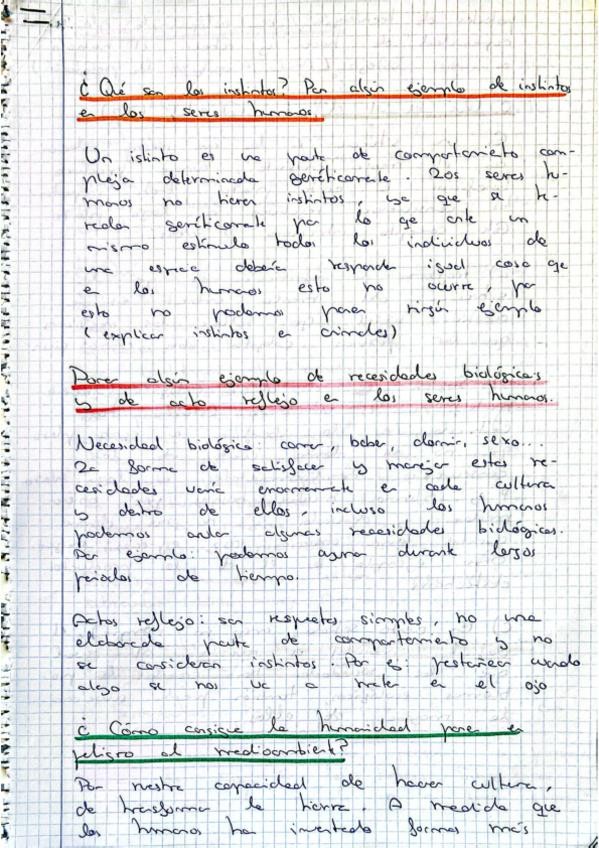 ¿Qué son los instintos? Pon algún ejemplo de instintos
en los seres humanos.
Un istinto es una pauta de comportamiento com-
pleja determinada genéticamente. Los seres hu-
manos no tienen instintos, ya que si he-
redan genéticamente por lo qe ante un
mismo estímulo todos los individuos de
una especie debería responder igual cosa qe
en los humanos esto no ocurre, por
esto no podemos poner ningún ejemplo
(explicar instintos en animales)
Poner algún ejemplo de necesidades biológicas
y de acto reflejo en los seres humanos.
Necesidad biológica: comer, beber, dormir, sexo...
La forma de satisfacer y manejar estas ne-
cesidades varía enormemente en cada cultura
y dentro de ellas, incluso los humanos
podemos anular algunas necesidades biológicas.
Por ejemplo: podemos ayunar durante largos
periodos de tiempo.
Actos reflejo: son respuetas simples, no una
elaborada pauta de comportamiento y no
se consideran instintos. Por ej: pestañear cuando
algo se nos va a meter en el ojo
¿Cómo consigue la humanidad poner en
peligro al medioambiente?
Por nuestra capacidad de hacer cultura,
de trasformar la tierra. A medida que
los humanos ha inventado formas más